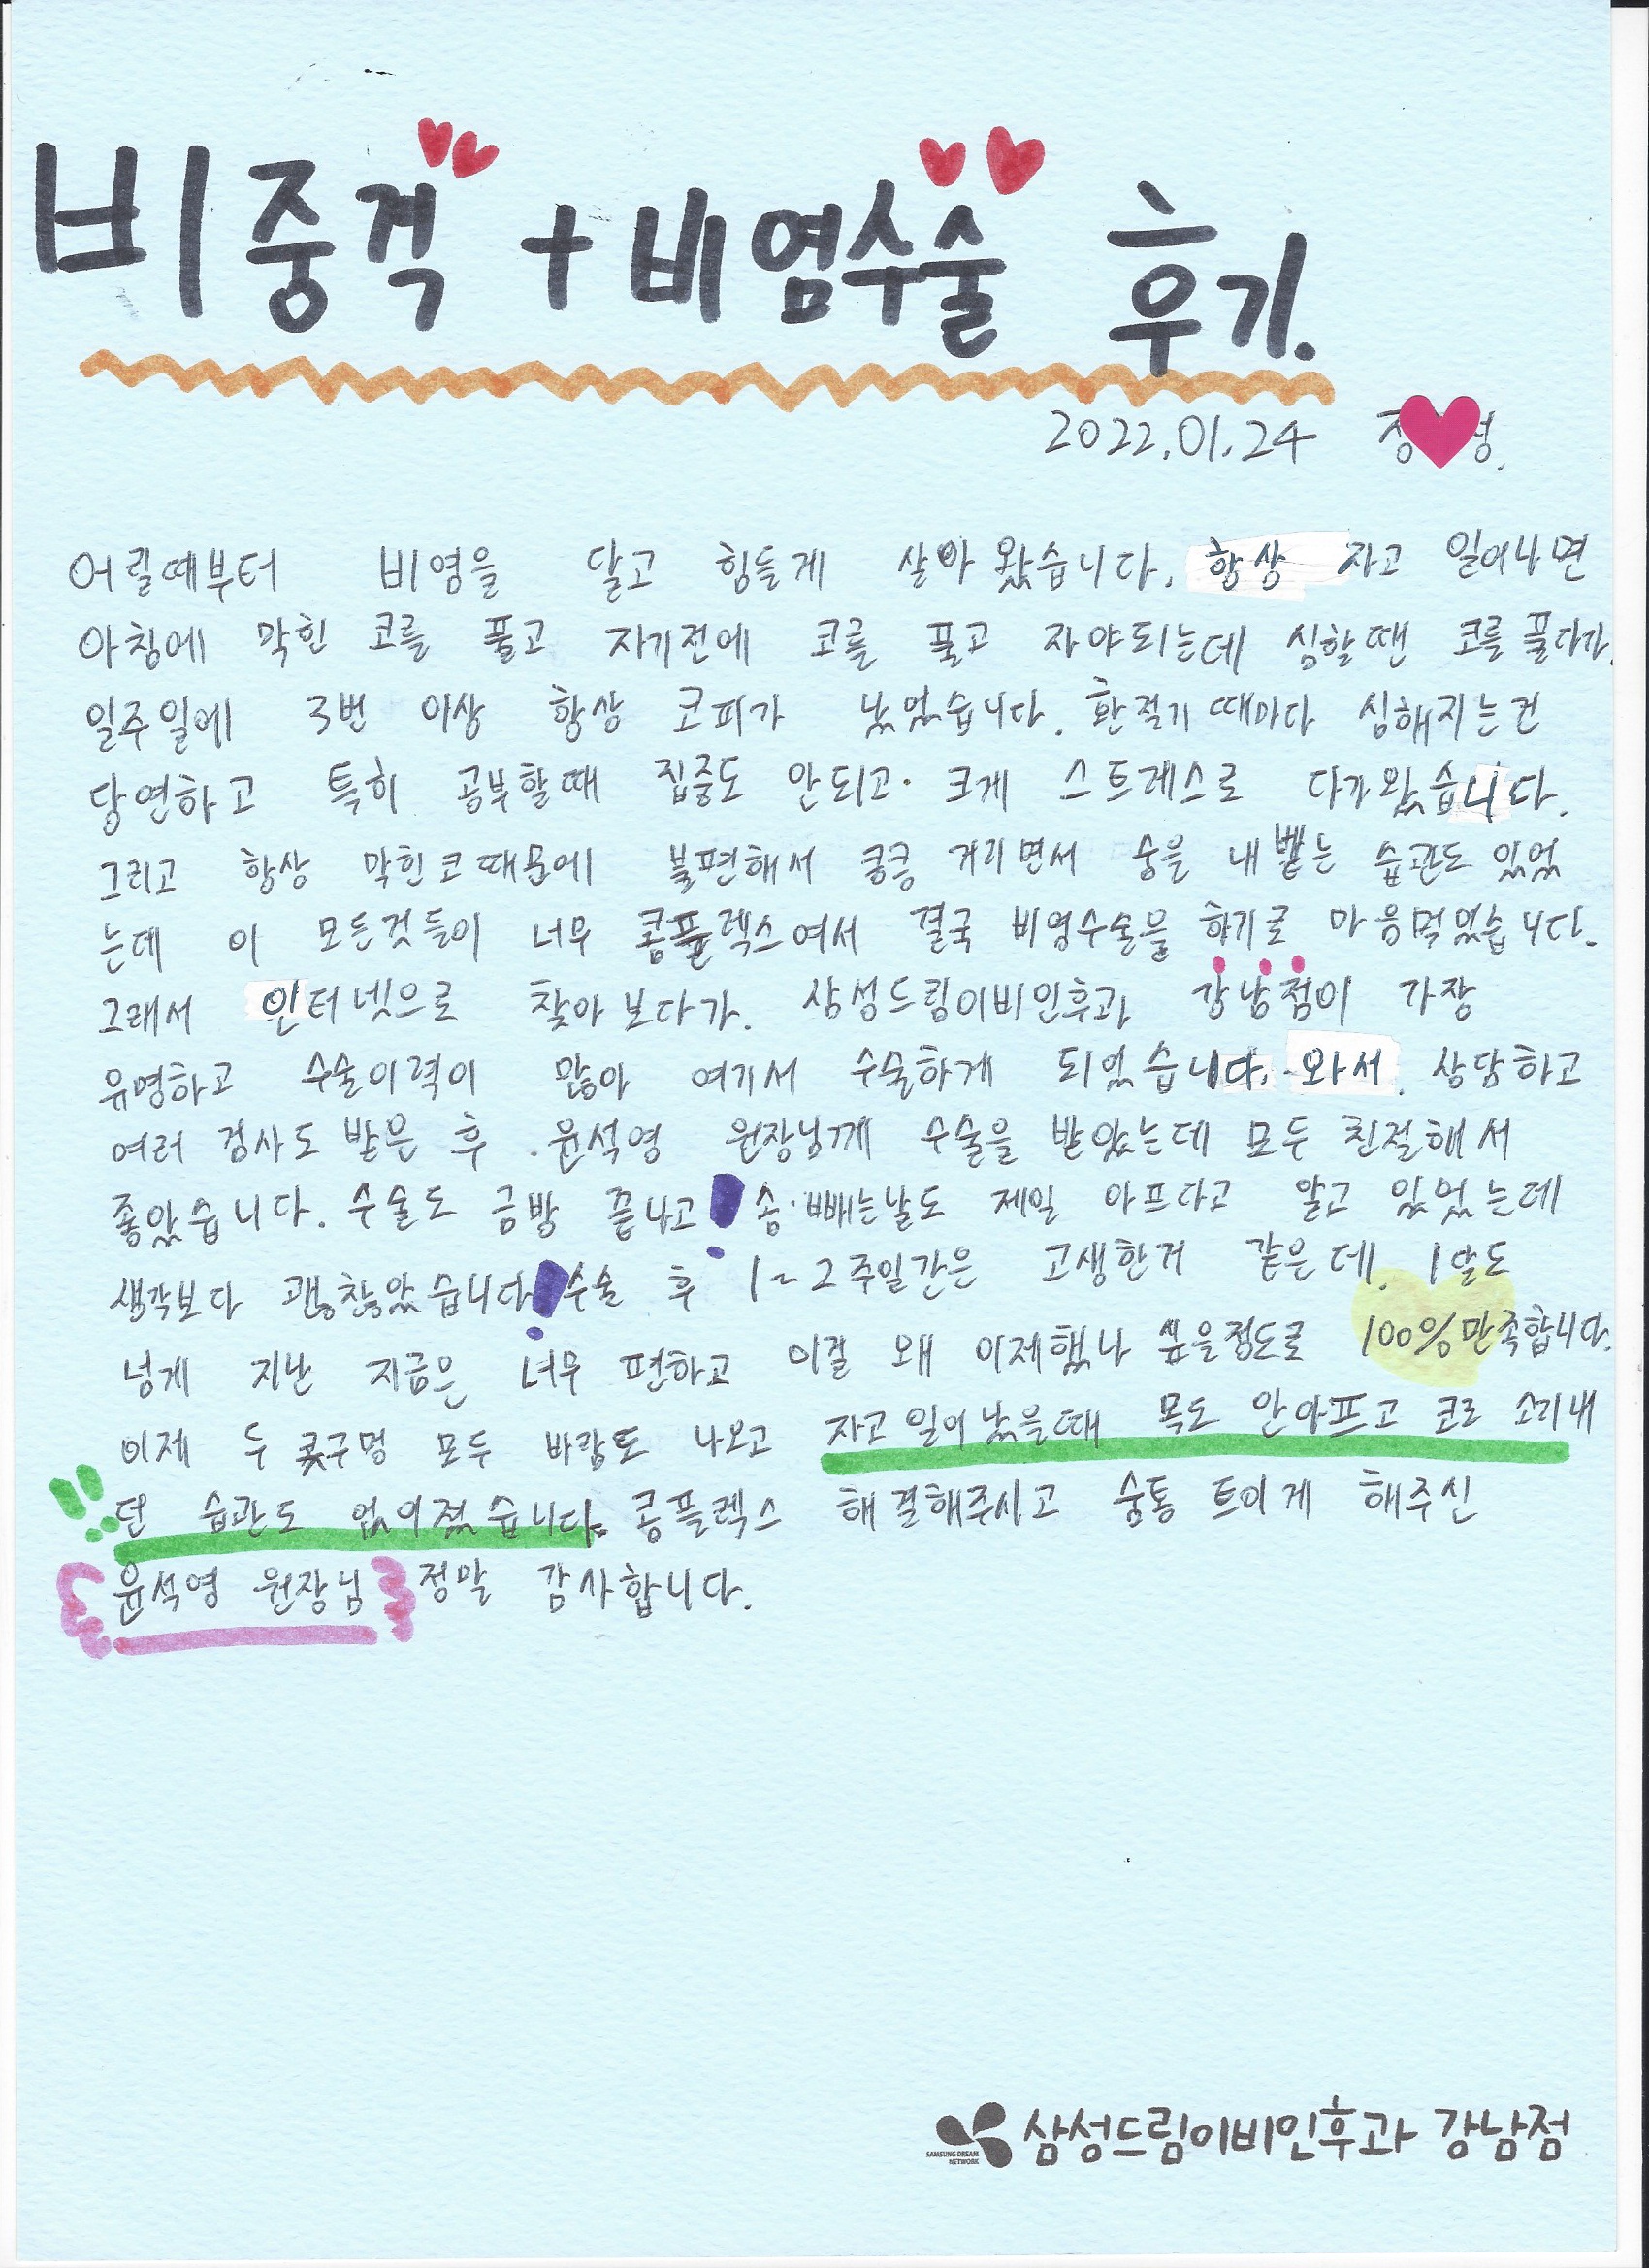 비중격 + 비염수술 후기.
2022.01.24
어릴때부터 비염을 달고 힘들게 살아 왔습니다. 항상 자고 일어나면
아침에 막힌 코를 풀고 자기전에 코를 풀고 자야되는데 심할땐 코를 풀다가
일주일에 3번 이상 항상 코피가 났었습니다. 환절기 때마다 심해지는건
당연하고 특히 공부할때 집중도 안되고 크게 스트레스로 다가왔습니다.
그리고 항상 막힌코때문에 불편해서 킁킁 거리면서 숨을 내뱉는 습관도 있었
는데 이 모든것들이 너무 콤플렉스여서 결국 비염수술을 하기로 마음먹었습니다.
그래서 인터넷으로 찾아보다가. 삼성드림이비인후과 강남점이 가장
유명하고 수술이력이 많아 여기서 수술하게 되었습니다. 와서 상담하고
여러 검사도 받은 후 윤석영 원장님께 수술을 받았는데 모두 친절해서
좋았습니다. 수술도 금방 끝나고! 솜 빼는날도 제일 아프다고 알고 있었는데
생각보다 괜찮았습니다! 수술 후 1~2주일간은 고생한거 같은데, 1달도
넘게 지난 지금은 너무 편하고 이걸 왜 이제했나 싶을정도로 100% 만족합니다.
이제 두 콧구멍 모두 바람도 나오고 자고 일어났을때 목도 안아프고 코로 소리내
던 습관도 없어졌습니다. 콤플렉스 해결해주시고 숨통 트이게 해주신
윤석영 원장님 정말 감사합니다.
SAMSUNG DREAM NETWORK 삼성드림이비인후과 강남점